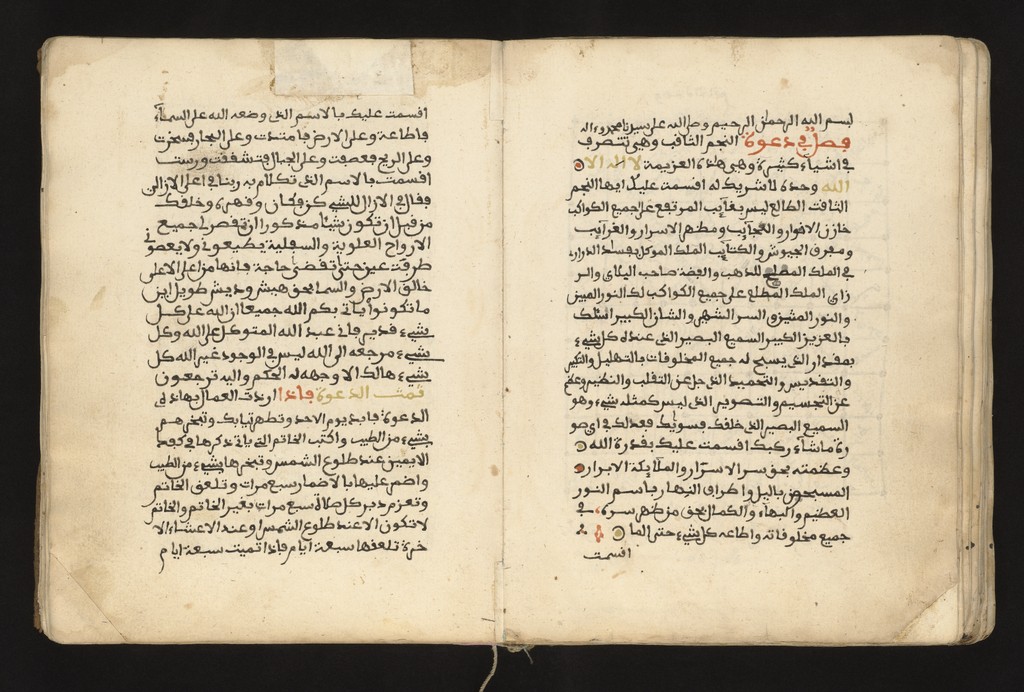 بسم الله الرحمن الرحيم وصلى الله على سيدنا محمد وءاله
فصل في دعوة النجم الثاقب وهي تتصرف
في اشياء كثيرة وهي هاذه العزيمة لا اله الا
الله وحده لا شريك له افسمت عليك ايها النجم
الثاقب الطالع ليس بغايب المرتفع على جميع الكواكب
خازن الانوار والعجايب ومظهر الاسرار والغرايب
ومفرق الجيوش والكتايب الملك الموكل بفساد الذرار
في الملك للذهب والفضة صاحب
زاي الملك المطلع على جميع الكواكب لك النور المبين
والنور المشيزق السر الشهير والشان الكبير اسئلك
بالعزيز الكبير السميع البصير الذي عنده كل شيء
بمقدار الذي يسبح له جميع المخلوفات بالتهليل والتكبير
والتقديس والتحميد الذي جل عن التقلب والنظير وعظم
عن التجسيم والتصوير الذي ليس كمثله شيء وهو
السميع البصير الذي خلقك فسويك فعدلك في اي صو
رة ما شاء ركبك افسمت عليك بقدرة الله
وعظمته بحق سر الاسرار والملايكة الابرار
المسبحون باليل واطراف النهار باسم النور
العظيم والبهاء والكمال بحق من ظهر سره في
جميع مخلوفاته واطاعه كل شيء حتى الما
افسمت
افسمت عليك بالاسم الذي وضعه الله على السماء
فاطاعة وعلى الارض فامتدت وعلى البحار فسخرت
وعلى الريح فعصفت وعلى الجبال فتشففت ورست
افسمت بالاسم الذي تكلم به ربنا في اعلى الازالي
فقال في الازال للشيء كن فكان وفهره وخلقك
من قبل ان تكون شيئا مذكورا ان تقض لي جميع
الارواح العلوية والسفلية يطيعوني ولا يعصوني
طرفت عين حتى تقضي حاجة فانها من اعلى الاعلى
خالق الارض والسما بحق هبش وديش طويل اين
ما تكونوا يأتي بكم الله جميعا ان الله على كل
شيء قدير فاني عبد الله المتوكل على الله وكل
شيء مرجعه الى الله ليس في الوجود غير الله كل
شيء هالك الا وجهه له الحكم واليه ترجعون
تمت الدعوة فاذا اردت العمال بهاذ
الدعوة فابد يوم الاحد وتطهر ثيابك وتبخرهم
بشيء من الطيب واكتب الخاتم الذي ياتي ذكرها في كفك
الايمين عند طلوع الشمس وتبخرها بشيء من الطيب
واضم عليها بالاضمار سبع مرات وتلعق الخاتم
وتعزم دبر كل صلاة سبع مرات بغير الخاتم والخاتم
لا تكون الا عند طلوع الشمس او عند الاعشاء الا
خرة تلعفها سبعة ايام فاذا تميت سبعة ايام